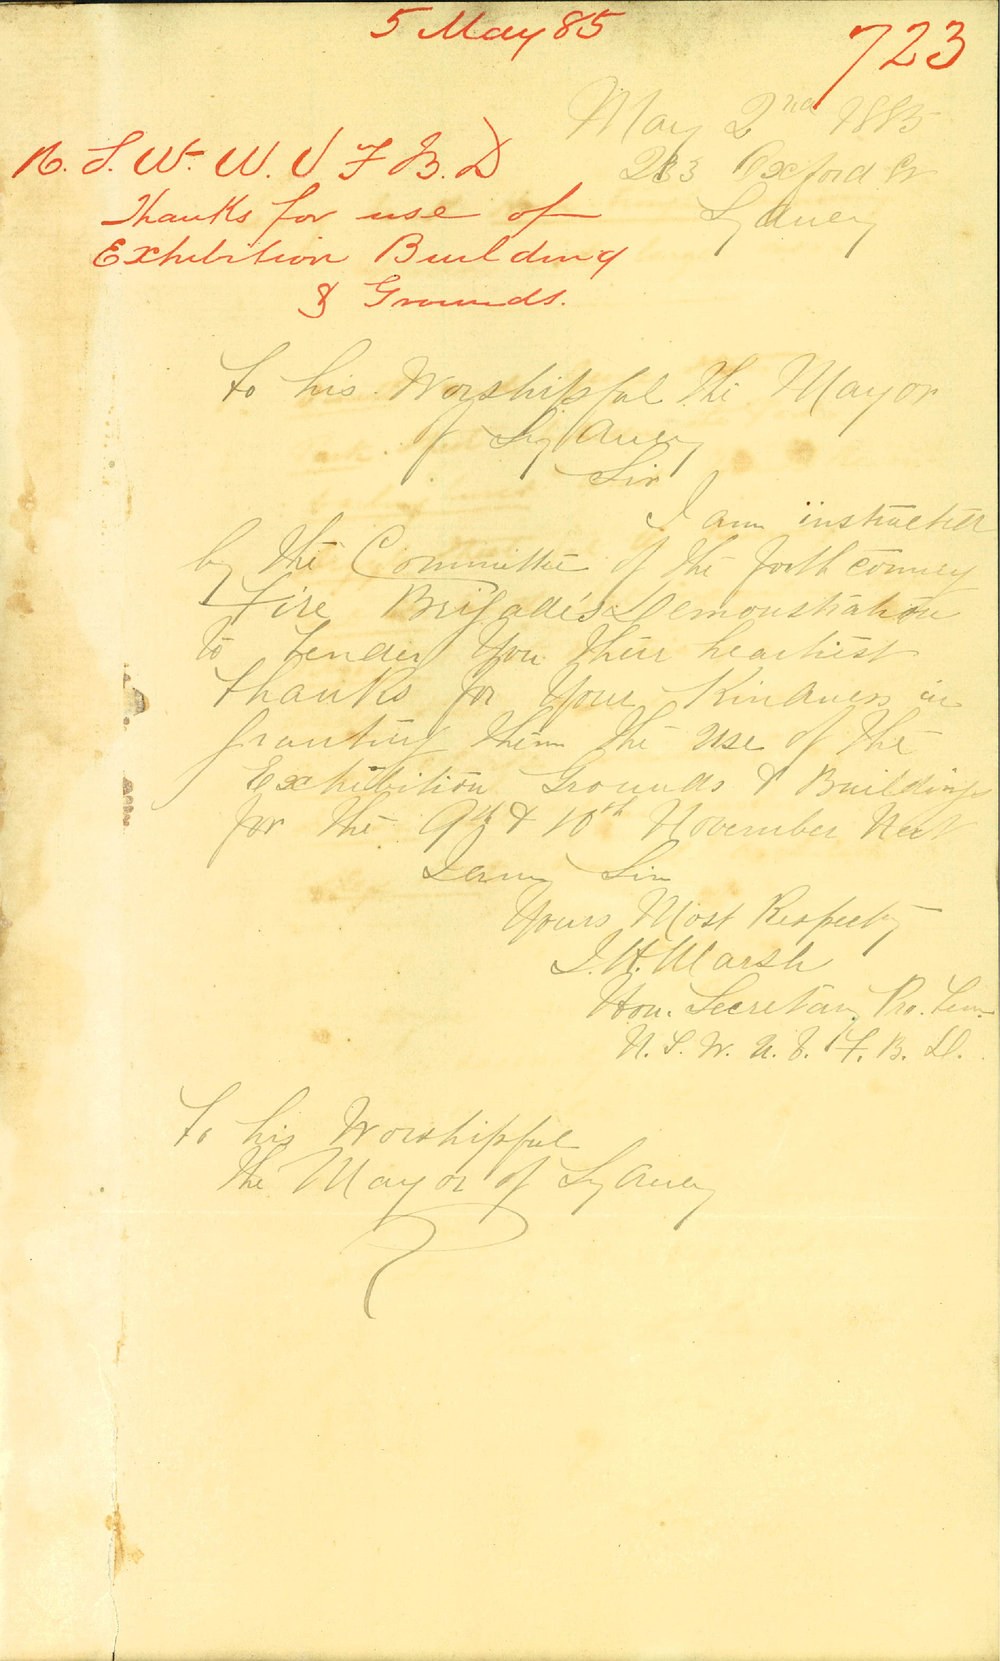 5 May 85
723
May 2nd 1885
283 Oxford St
Sydney
N. S. W. W. V F B. D
Thanks for use of
Exhibition Building
& Grounds.
To his Worshipful the Mayor
of Sydney
Sir
I am instructed
by the Committee of the forthcoming
Fire Brigades Demonstration
to tender you their heartiest
thanks for your Kindness in
granting them the use of the
Exhibition Grounds & Buildings
for the 9th & 10th November Next
Sir
Yours Most Respectly
J. H. Marsh
Hon. Secretary Pro. Tem.
N. S. W. U. V. F. B. D.
To his Worshipful
the Mayor of Sydney